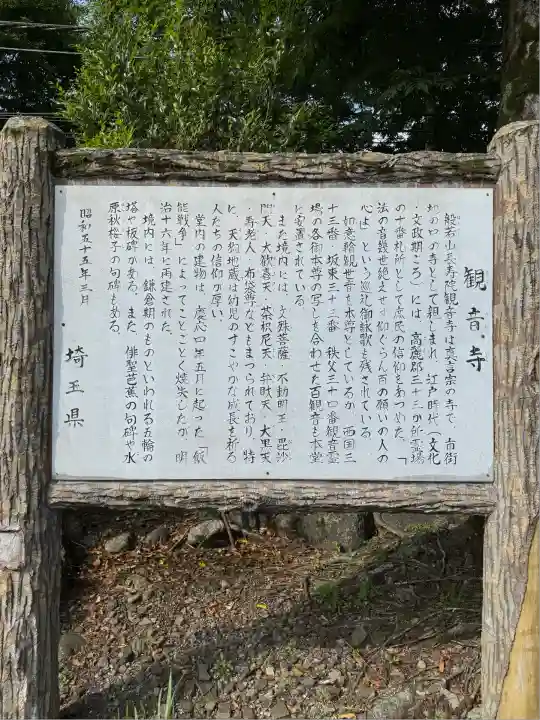 観音寺
般若山長寿院観音寺は真言宗の寺で、南街
地の口の寺として親しまれ、江戸時代（文化
・文政期ころ）には、高麗郡三十三か所霊場
の十番札所として庶民の信仰をあつめた。「
法の音幾世絶えせず仰ぐらん百の願いの人の
心は」という巡礼御詠歌も残されている。
如意輪観世音を本尊としているが、西国三
十三番・坂東三十三番・秩父三十四番観音霊
場の各御本尊の写しを合わせた百観音も本堂
に安置されている。
また境内には、文殊菩薩・不動明王・毘沙
門天・大歓喜天・荼枳尼天・弁財天・大黒天
・寿老人・布袋尊などもまつられており、特
に、天約地蔵は幼児のすこやかな成長を祈る
人たちの信仰が厚い。
堂内の建物は、慶応四年五月に起った「飯
能戦争」によってことごとく焼失したが、明
治十六年に再建された。
境内には、鎌倉期のものといわれる五輪の
塔や板碑がある。また、俳聖芭蕉の句碑や水
原秋桜子の句碑もある。
昭和五十五年三月
埼玉県